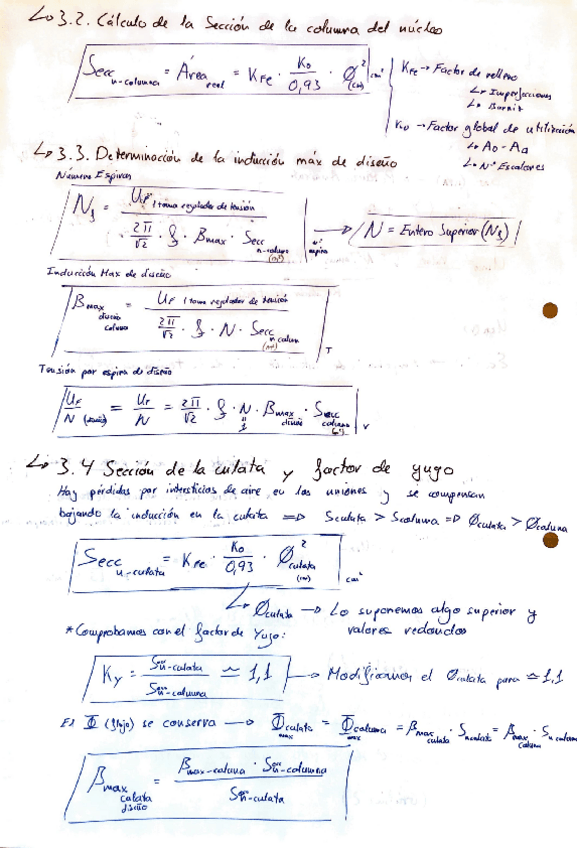 ↳ 3.2. Cálculo de la Sección de la columna del núcleo
Secc n-columna = Área real = K Fe · Ko / 0,93 · Ø² (cm) | cm²
K Fe → Factor de relleno
↳ Imperfecciones
↳ Barniz
Ko → Factor global de utilización
↳ Ao - Aa
↳ Nº Escalones
↳ 3.3. Determinación de la inducción máx de diseño
Número Espiras
N₁ = UF 1 toma regulador de tensión / 2π/√2 · f · Bmax · Secc n-columna (m²) | nº espira → N = Entero Superior (N₁)
Inducción Max de diseño
Bmax diseño columna = UF 1 toma regulador de tensión / 2π/√2 · f · N · Secc n column (m²) | T
Tensión por espira de diseño
UF / N (diseño) = UF / N = 2π/√2 · f · N · Bmax diseño · Secc columna | V
1
↳ 3.4 Sección de la culata y factor de yugo
Hay pérdidas por intersticios de aire en las uniones y se compensan
bajando la inducción en la culata ⇒ Sculata > Scolumna ⇒ Øculata > Øcolumna
Secc n-culata = K Fe · Ko / 0,93 · Ø² culata (cm) | cm²
↳ Øculata → Lo suponemos algo superior y
valores redondos
*Comprobamos con el factor de Yugo:
Ky = Secc n-culata / Secc n-columna ≃ 1,1 → Modificamos el Øculata para ≃ 1,1
El Φ (flujo) se conserva → Φculata max = Φcolumna max = Bmax culata · Sn culata = Bmax columna · Sn columna
Bmax culata diseño = Bmax-columna · Secc n-columna / Secc n-culata